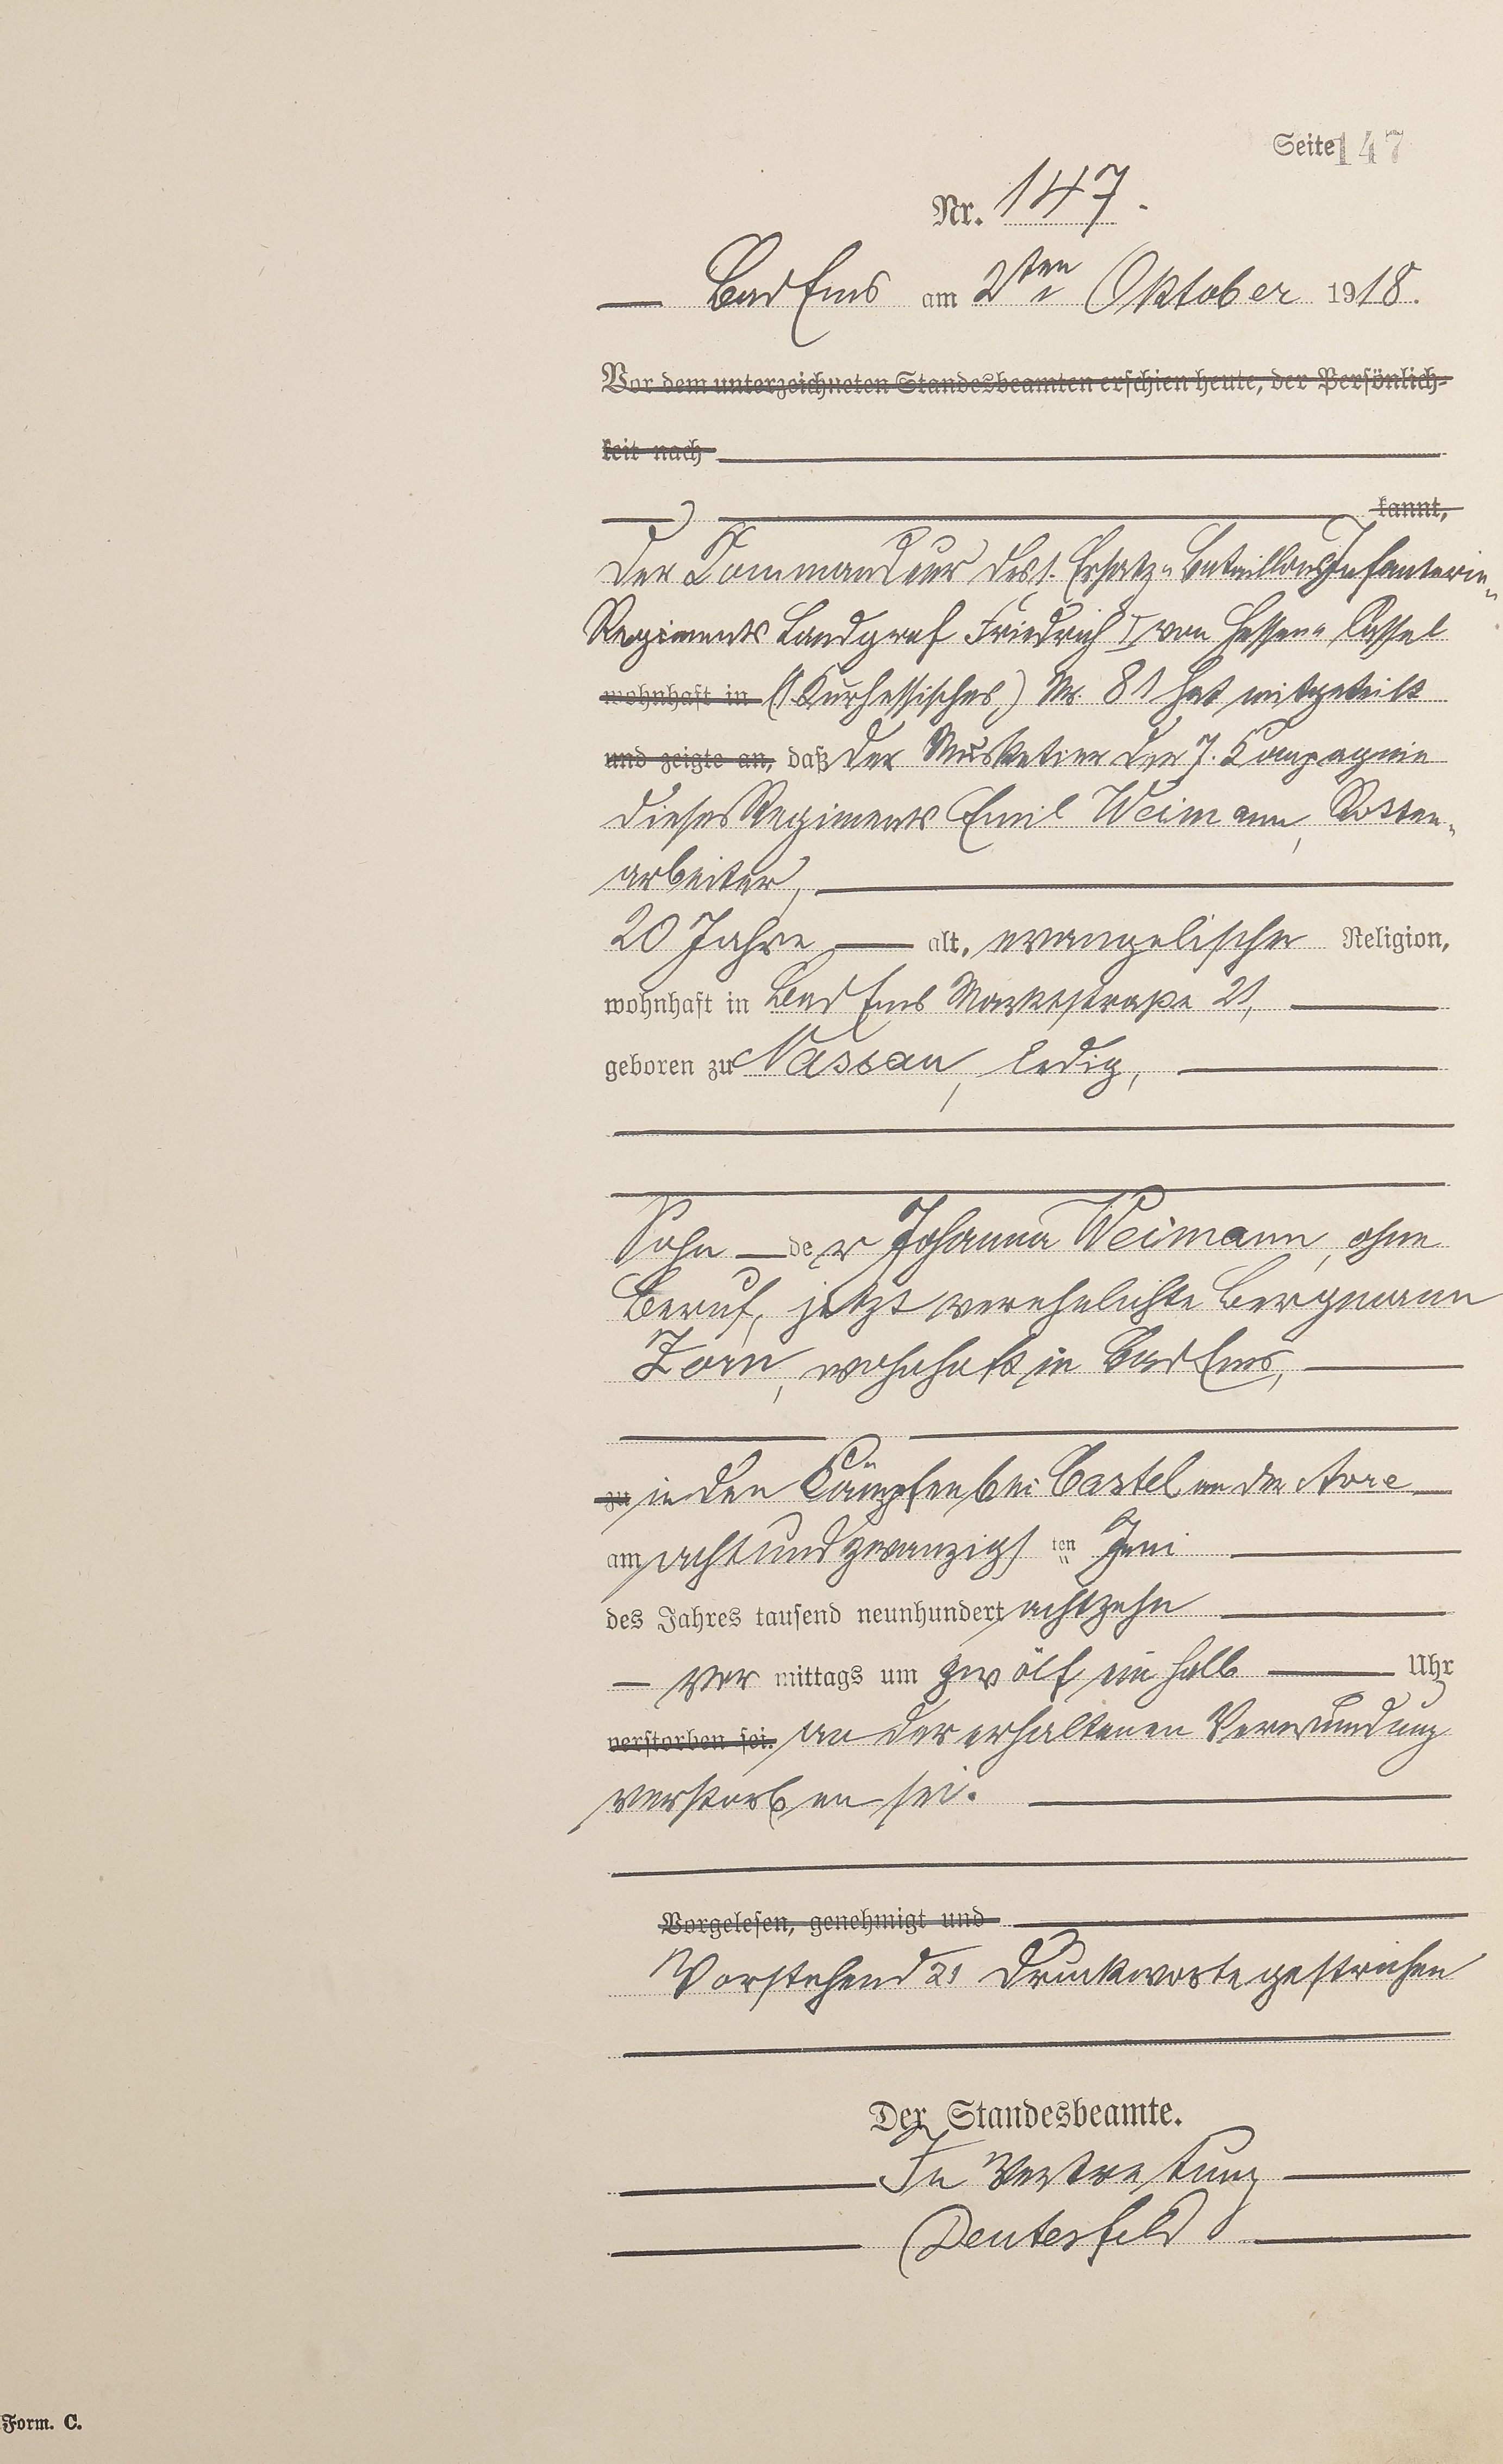 Seite 147
Nr. 147.
Bad Ems am 2ten Oktober 1918.
Vor dem unterzeichneten Standesbeamten erschien heute, der Persönlich-
keit nach
kannt,
Der Kommandeur des 1. Ersatz-Bataillons Infanterie-
Regiments Landgraf Friedrich I von Hessen-Cassel
wohnhaft in (1 Kurhessisches) Nr. 81 hat mitgeteilt
und zeigte an, daß der Musketier der 7. Kompagnie
dieses Regiments Emil Weimann, Rotten-
arbeiter,
20 Jahre alt, evangelischer Religion,
wohnhaft in Bad Ems Marktstraße 21,
geboren zu Nassau, ledig,
Sohn der Johanna Weimann, ohne
Beruf, jetzt verehelichte Bergmann
Zorn, wohnhaft in Bad Ems,
zu in den Kämpfen bei Castel an der Avre
am achtundzwanzigsten Juni
des Jahres tausend neunhundert achtzehn
Vor mittags um zwölf ein halb Uhr
verstorben sei. an der erhaltenen Verwundung
verstorben sei.
Vorgelesen, genehmigt und
Vorstehend 21 Druckworte gestrichen
Der Standesbeamte.
In Vertretung
Form. C.